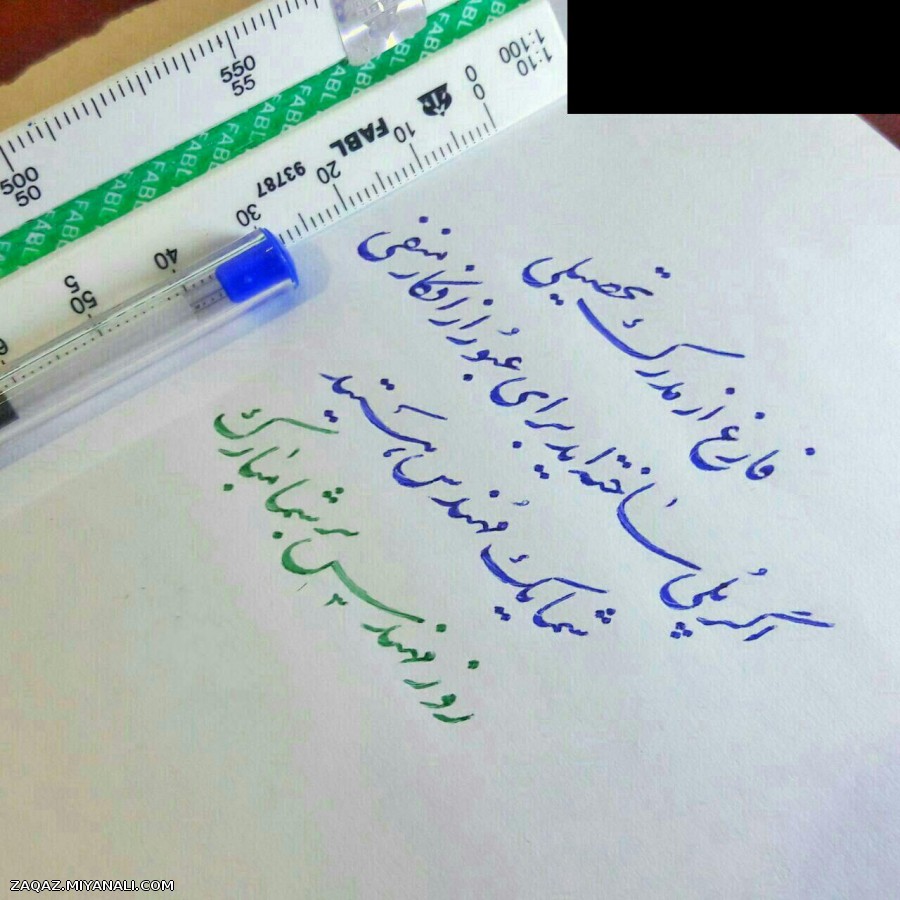 فارغ از مدرک تحصیلی
اگر پلی ساخته اید برای عبور از افکار منفی
شما یک مهندس هستید
روز مهندس بر شما مبارک
550
55
500
50
FABL FABL FABL FABL FABL FABL FABL
1:10
1:100
0
0
10
20
30
40
50
5
FABL
93787
ZAQAZ.MIYANALI.COM